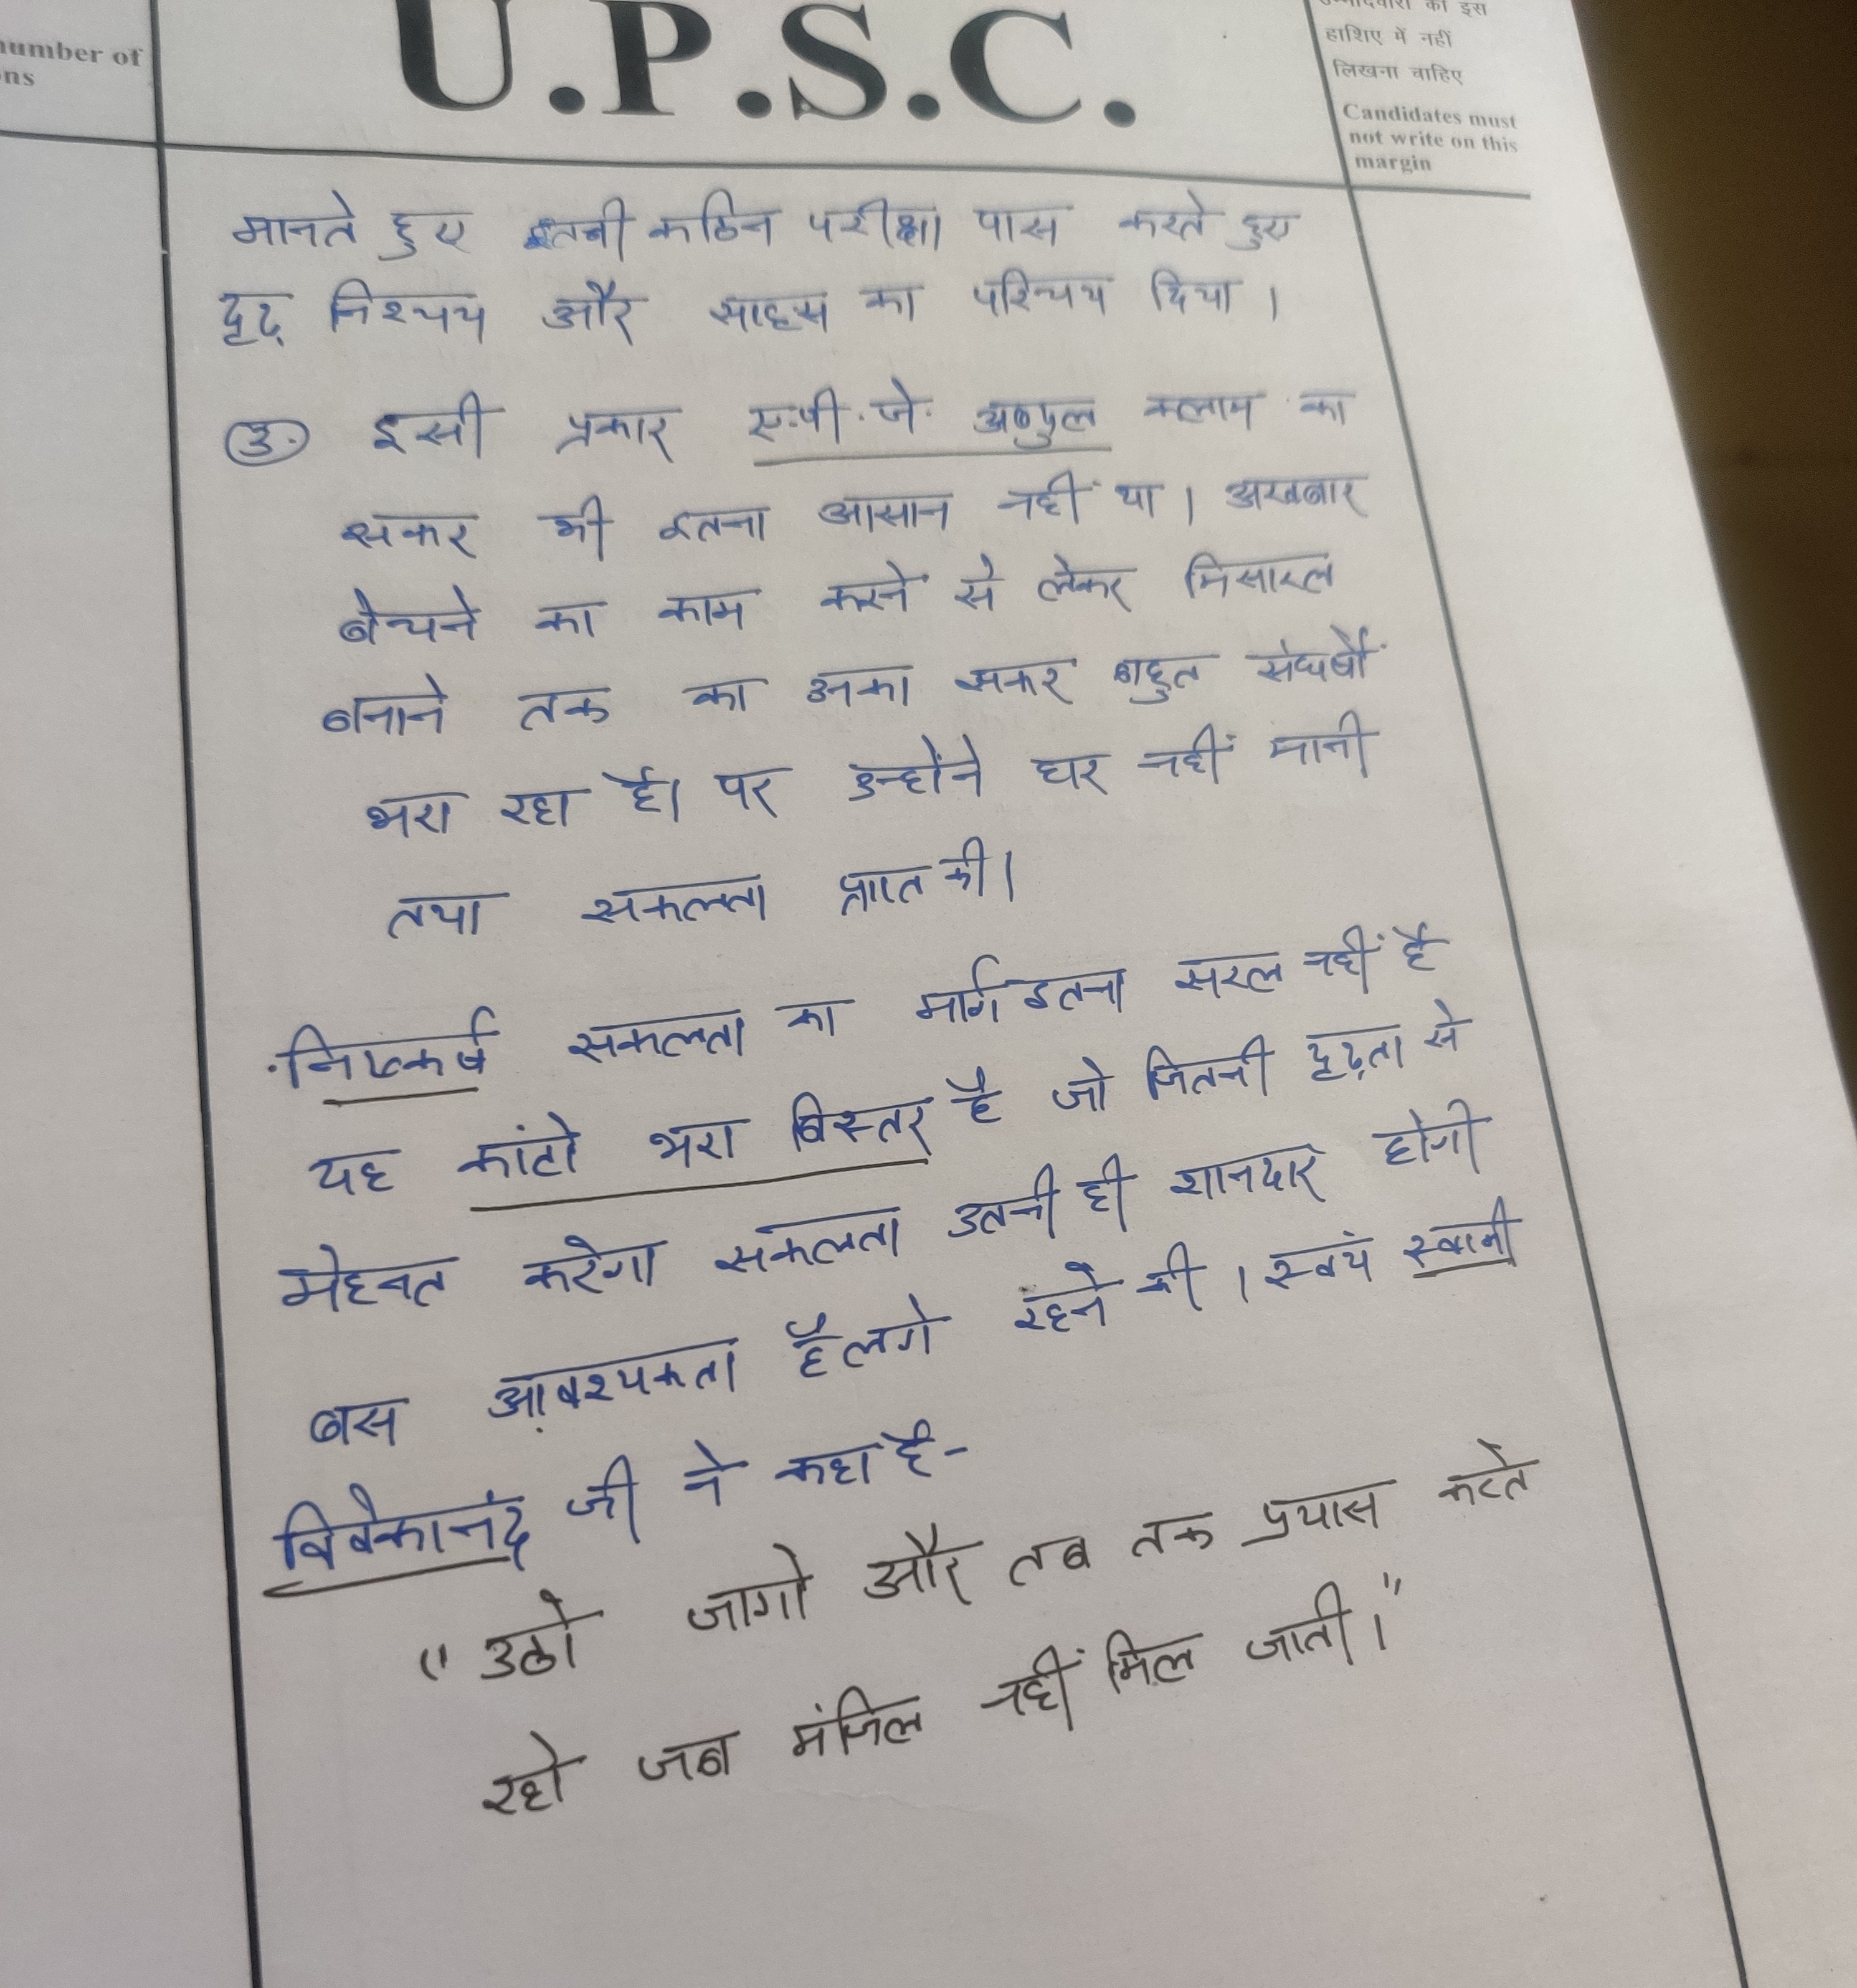 number of
ns
U.P.S.C.
उम्मीदवारों को इस
हाशिए में नहीं
लिखना चाहिए
Candidates must
not write on this
margin
मानते हुए इतनी कठिन परीक्षा पास करते हुए
दृढ़ निश्चय और साहस का परिचय दिया।
3. इसी प्रकार ए.पी.जे. अब्दुल कलाम का
सफर भी इतना आसान नहीं था। अखबार
बेचने का काम करने से लेकर मिसाइल
बनाने तक का उनका सफर बहुत संघर्षों
भरा रहा है। पर उन्होंने हार नहीं मानी
तथा सफलता प्राप्त की।
निष्कर्ष सफलता का मार्ग इतना सरल नहीं है
यह कांटो भरा बिस्तर है जो जितनी दृढ़ता से
मेहनत करेगा सफलता उतनी ही शानदार होगी
बस आवश्यकता है लगे रहने की। स्वयं स्वामी
विवेकानंद जी ने कहा है-
"उठो जागो और तब तक प्रयास करते
रहो जब मंजिल नहीं मिल जाती।"